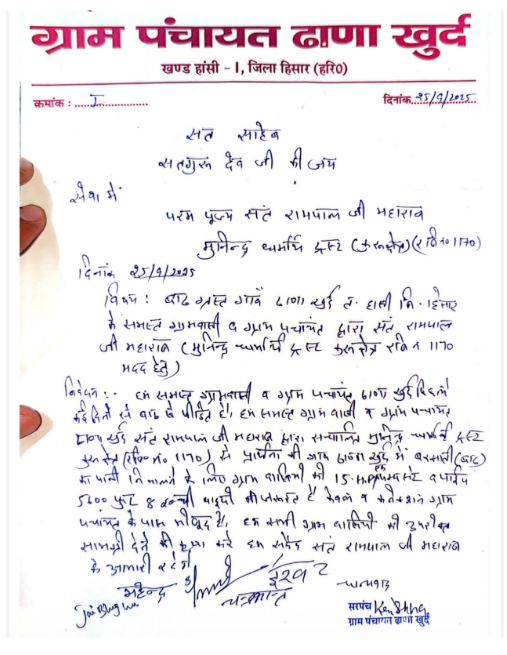 ग्राम पंचायत ढाणा खुर्द
खण्ड हांसी - I, जिला हिसार (हरि0)
क्रमांक : ..... I ............. दिनांक. 25/9/2025
सत साहेब
सतगुरू देव जी की जय
सेवा में
परम पूज्य संत रामपाल जी महाराज
मुनिन्द्र धर्मार्थ ट्रस्ट (कुरूक्षेत्र) (र जि न० 1170)
दिनांक 25/9/2025
विषय : बाढ़ ग्रस्त गांव ढाणा खुर्द त. हांसी जि. हिसार
के समस्त ग्रामवासी व ग्राम पंचायत द्वारा संत रामपाल
जी महाराज (मुनिन्द्र धर्मार्थ ट्रस्ट कुरूक्षेत्र रजि न 1170
मदद हेतु)
निवेदन : - हम समस्त ग्रामवासी व ग्राम पंचायत ढाणा खुर्द पिछले
कई दिनों से बाढ़ से पीड़ित है, हम समस्त ग्राम वासी व ग्राम पंचायत
ढाणा खुर्द संत रामपाल जी महाराज द्वारा सन्चालित मुनिन्द्र धर्मार्थ ट्रस्ट
कुरूक्षेत्र (रजि० न० 1170) से प्रार्थना की ग्राम ढाणा खुर्द में बरसाती (बाढ़)
का पानी निकालने के लिए ग्राम वासियों को 15 व पाईप
5600 फुट 8 इन्ची की जरूरत है केबल व ग्राम
पंचायत के पास मौजूद है, हम सभी ग्राम वासियों को उपरोक्त
सामग्री देने की कृपा करे हम सदैव संत रामपाल जी महाराज
के आभारी रहेगें
महेन्द्र
चन्द्रकान्त
ईश्वर
सरपंच
ग्राम पंचायत ढाणा खुर्द